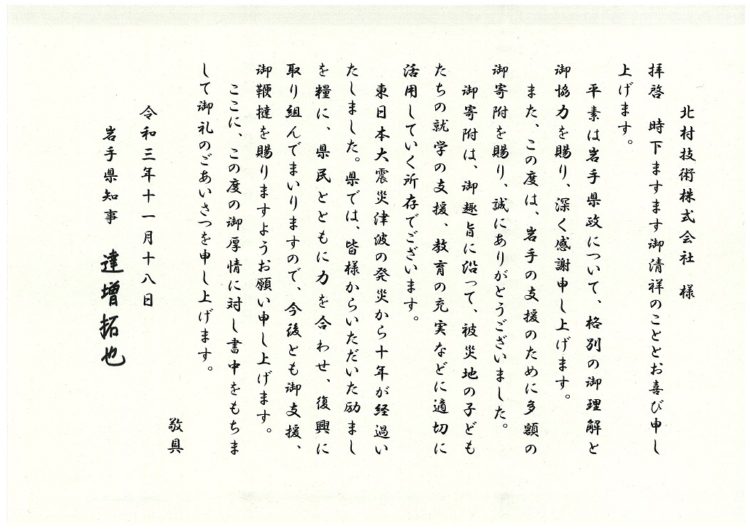 北村技術株式会社 様
拝啓 時下ますます御清祥のこととお喜び申し
上げます。
平素は岩手県政について、格別の御理解と
御協力を賜り、深く感謝申し上げます。
また、この度は、岩手の支援のために多額の
御寄附を賜り、誠にありがとうございました。
御寄附は、御趣旨に沿って、被災地の子ども
たちの就学の支援、教育の充実などに適切に
活用していく所存でございます。
東日本大震災津波の発災から十年が経過い
たしました。県では、皆様からいただいた励まし
を糧に、県民とともに力を合わせ、復興に
取り組んでまいりますので、今後とも御支援、
御鞭撻を賜りますようお願い申し上げます。
ここに、この度の御厚情に対し書中をもちま
して御礼のごあいさつを申し上げます。
敬具
令和三年十一月十八日
岩手県知事 達増拓也